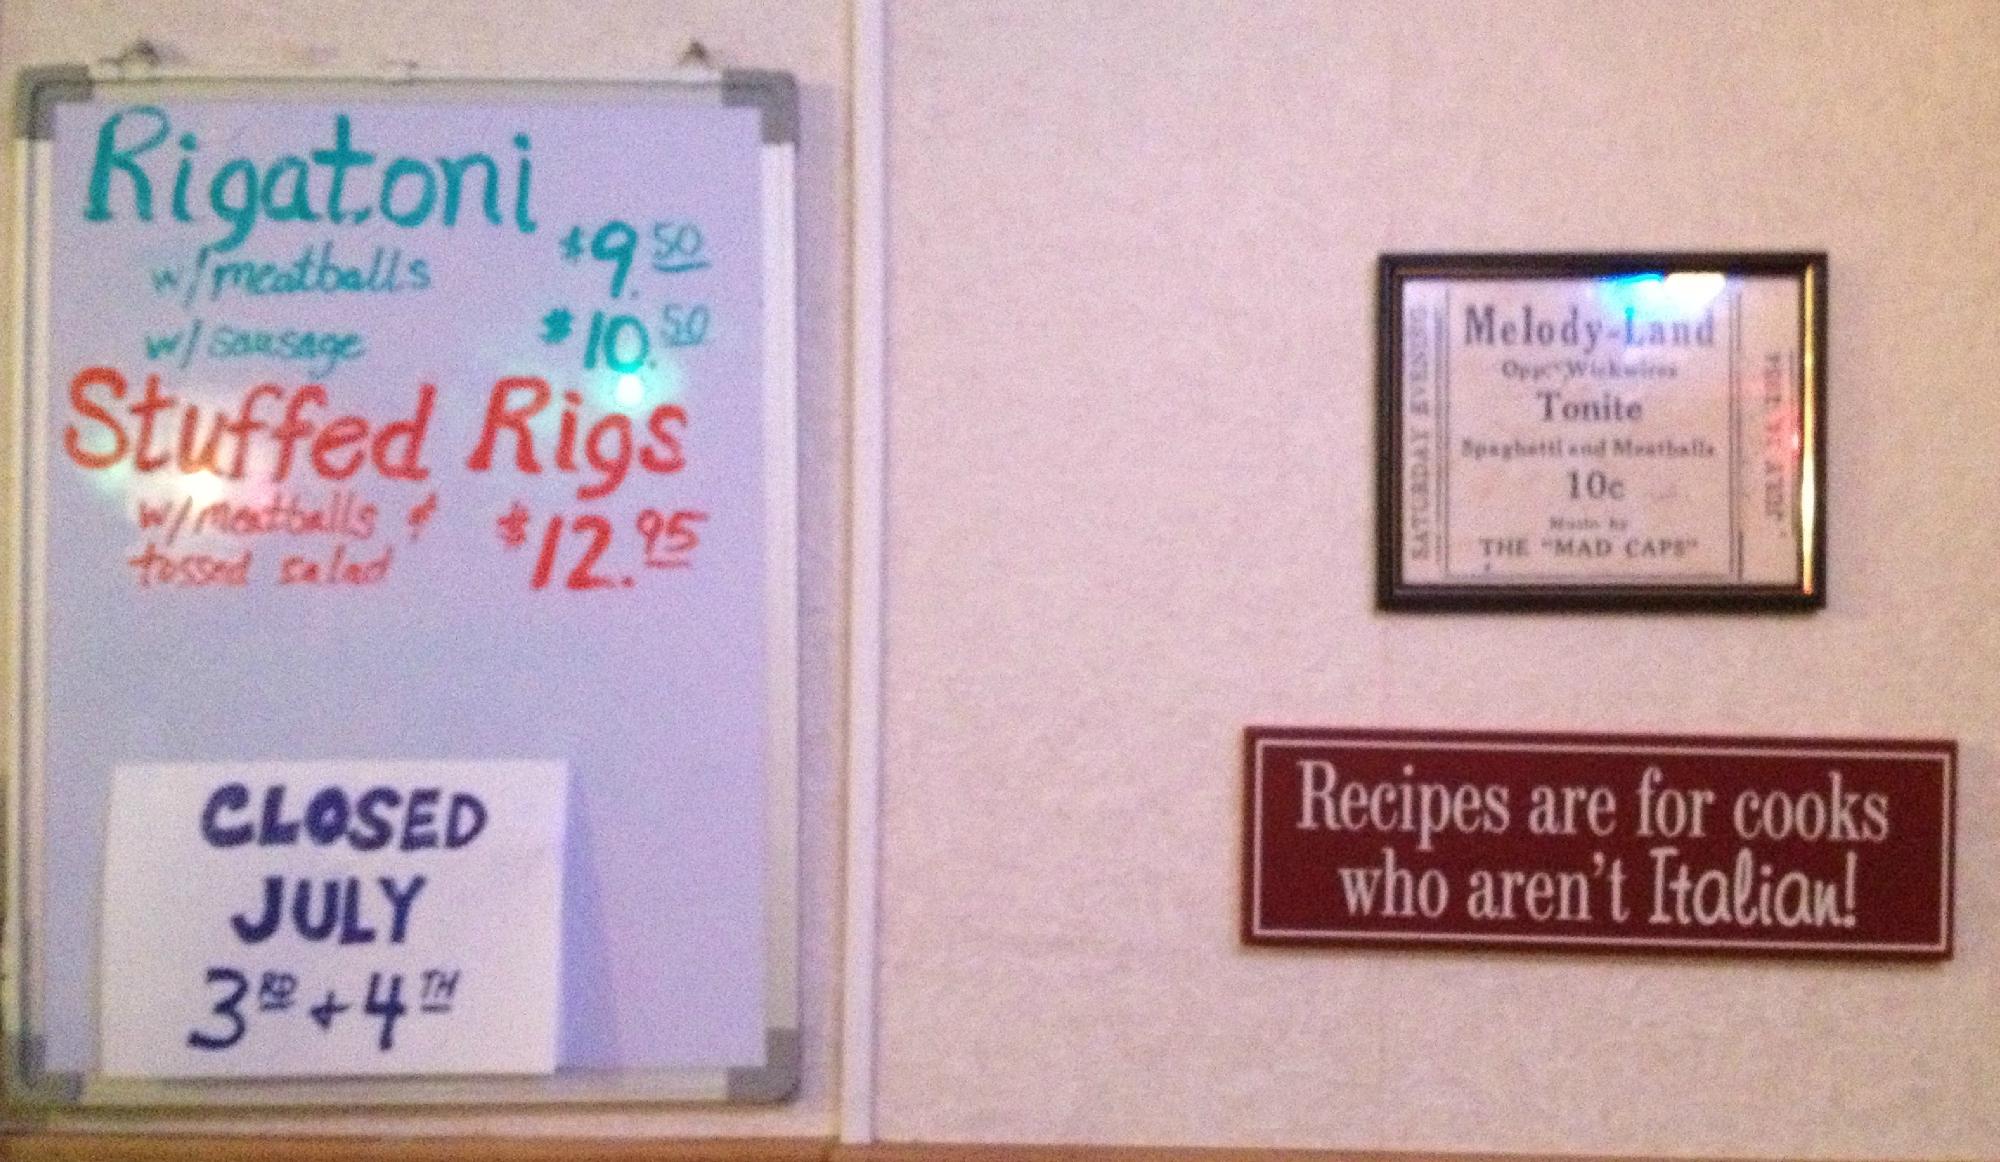 Rigatoni
w/meatballs $9.50
w/sausage $10.50
Stuffed Rigs
w/meatballs & $12.95
tossed salad
CLOSED
JULY
3RD + 4TH
SATURDAY EVENING
Melody-Land
Opp. Wickwires
Tonite
Spaghetti and Meatballs
10c
Music by
THE "MAD CAPS"
Recipes are for cooks
who aren't Italian!